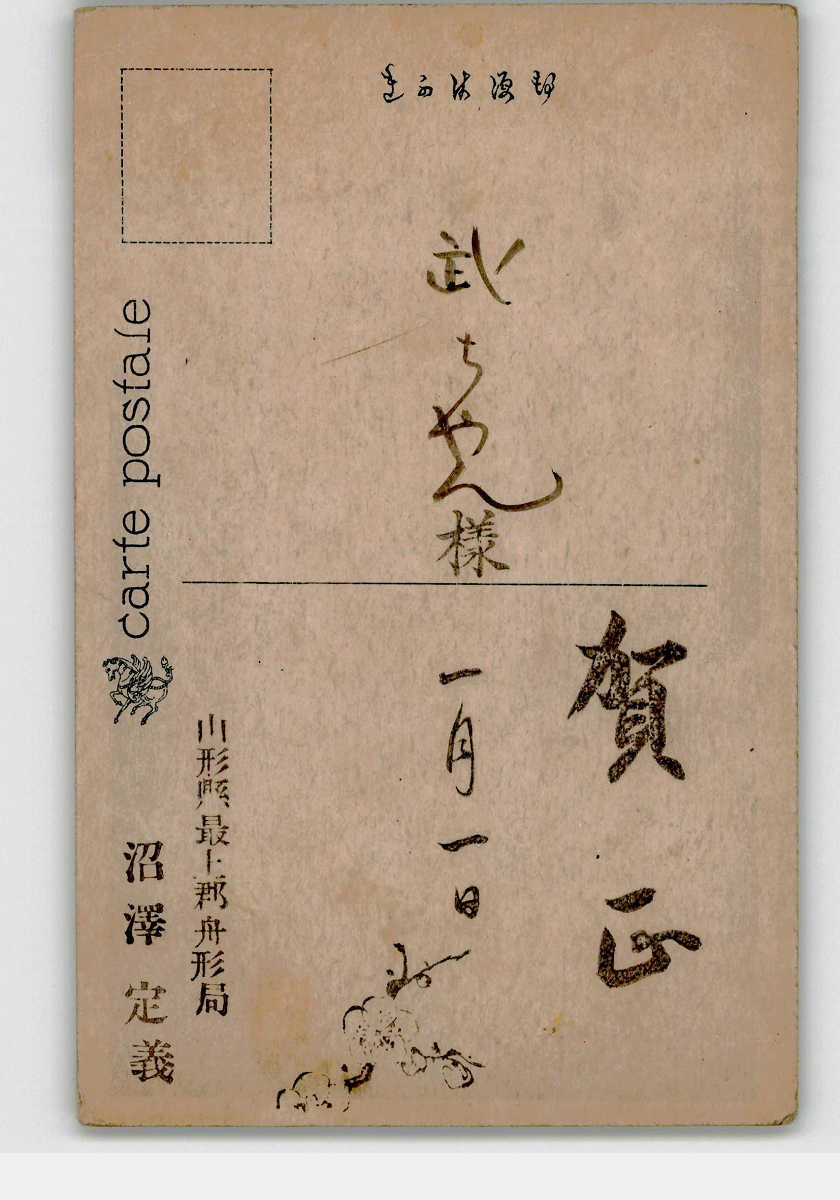 郵便はかき
武ちやん様
賀正
一月一日
山形縣最上郡舟形局
沼澤定義
carte postale